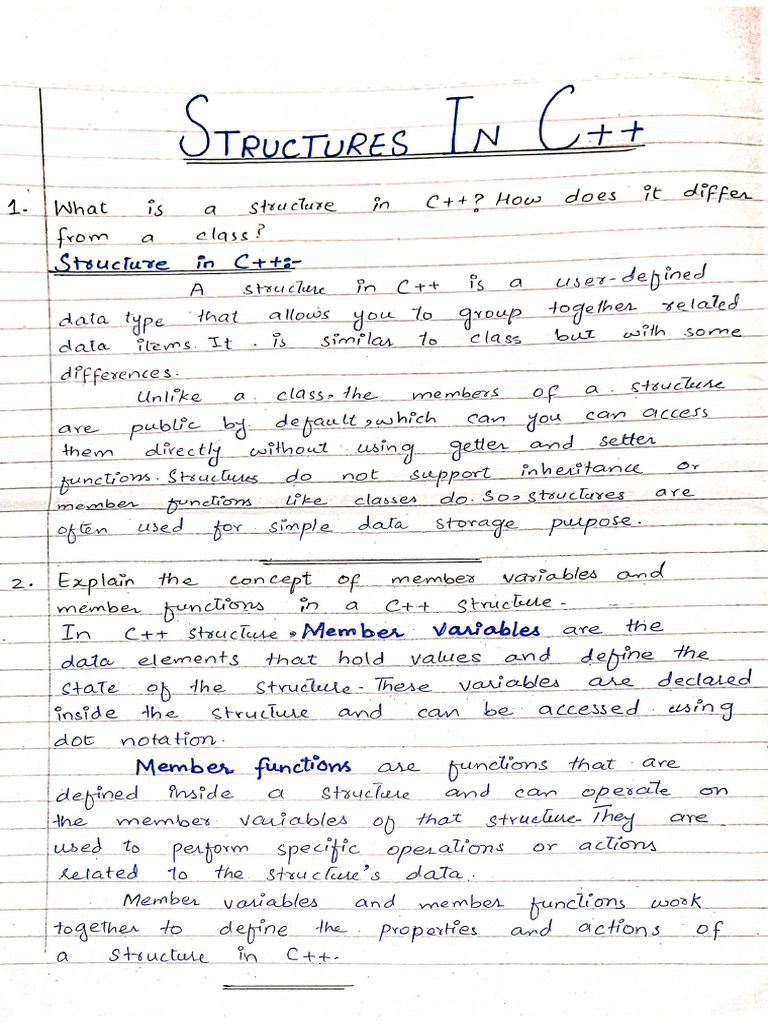 STRUCTURES IN C++
1. What is a structure in C++? How does it differ
from a class?
Structure in C++:-
A structure in C++ is a user-defined
data type that allows you to group together related
data items. It is similar to class but with some
differences.
Unlike a class, the members of a structure
are public by default, which can you can access
them directly without using getter and setter
functions. Structures do not support inheritance or
member functions like classes do. So, structures are
often used for simple data storage purpose.
2. Explain the concept of member variables and
member functions in a C++ structure.
In C++ structure, Member variables are the
data elements that hold values and define the
state of the structure. These variables are declared
inside the structure and can be accessed using
dot notation.
Member functions are functions that are
defined inside a structure and can operate on
the member variables of that structure. They are
used to perform specific operations or actions
related to the structure's data.
Member variables and member functions work
together to define the properties and actions of
a structure in C++.